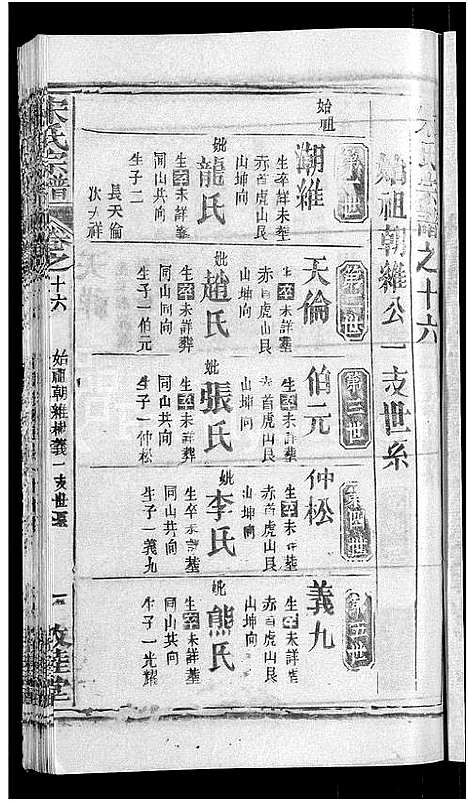 宋氏宗譜之十六
始祖朝維公一支世系
第一世
始祖
潮維
生卒詳未塟
赤首虎山艮
山坤向
妣龍氏
生卒未詳塟
同山共向
生子二
長天倫
次天祥
第二世
天倫
生卒未詳塟
赤首虎山艮
山坤向
妣趙氏
生卒未詳葬
同山共向
生子一伯元
第三世
伯元
生卒未詳塟
赤首虎山艮
山坤向
妣張氏
生卒未詳葬
同山共向
生子一仲松
第四世
仲松
生卒未詳塟
赤首虎山艮
山坤向
妣李氏
生卒未詳塟
同山共向
生子一義九
第五世
義九
生卒未詳塟
赤首虎山艮
山坤向
妣熊氏
生卒未詳塟
同山共向
生子一光耀
宋氏宗譜
卷之十六
始祖朝維
一支世系
一
堂